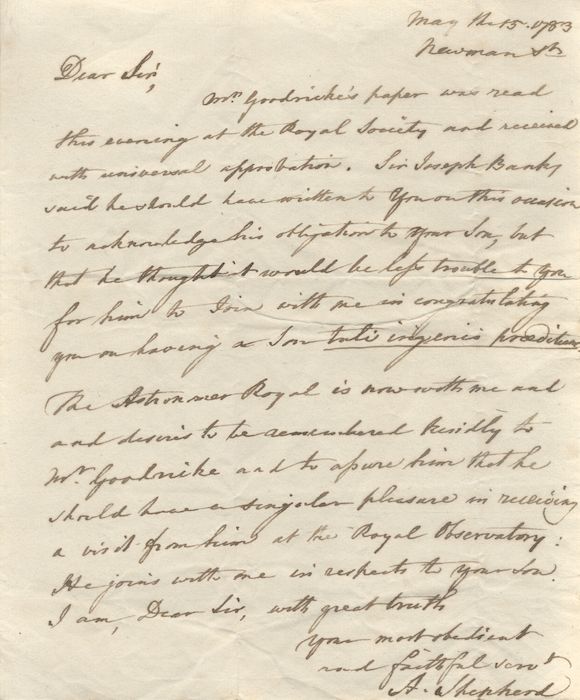 May the 15. 1783
Newman St.
Dear Sir,
Mr. Goodricke's paper was read
this evening at the Royal Society and received
with universal approbation. Sir Joseph Banks
said he should have written to You on this occasion
to acknowledge his obligation to Your Son, but
that he thought it would be less trouble to You
for him to Join with me in congratulating
you on having a Son tali ingenio præditum
The Astronomer Royal is now with me and
and desires to be remembered kindly to
Mr. Goodricke and to assure him that he
should have a singular pleasure in receiving
a visit from him at the Royal Observatory:
He joins with me in respects to your Son.
I am, Dear Sir, with great truth
Your most obedient
and faithful servt.
A. Shepherd